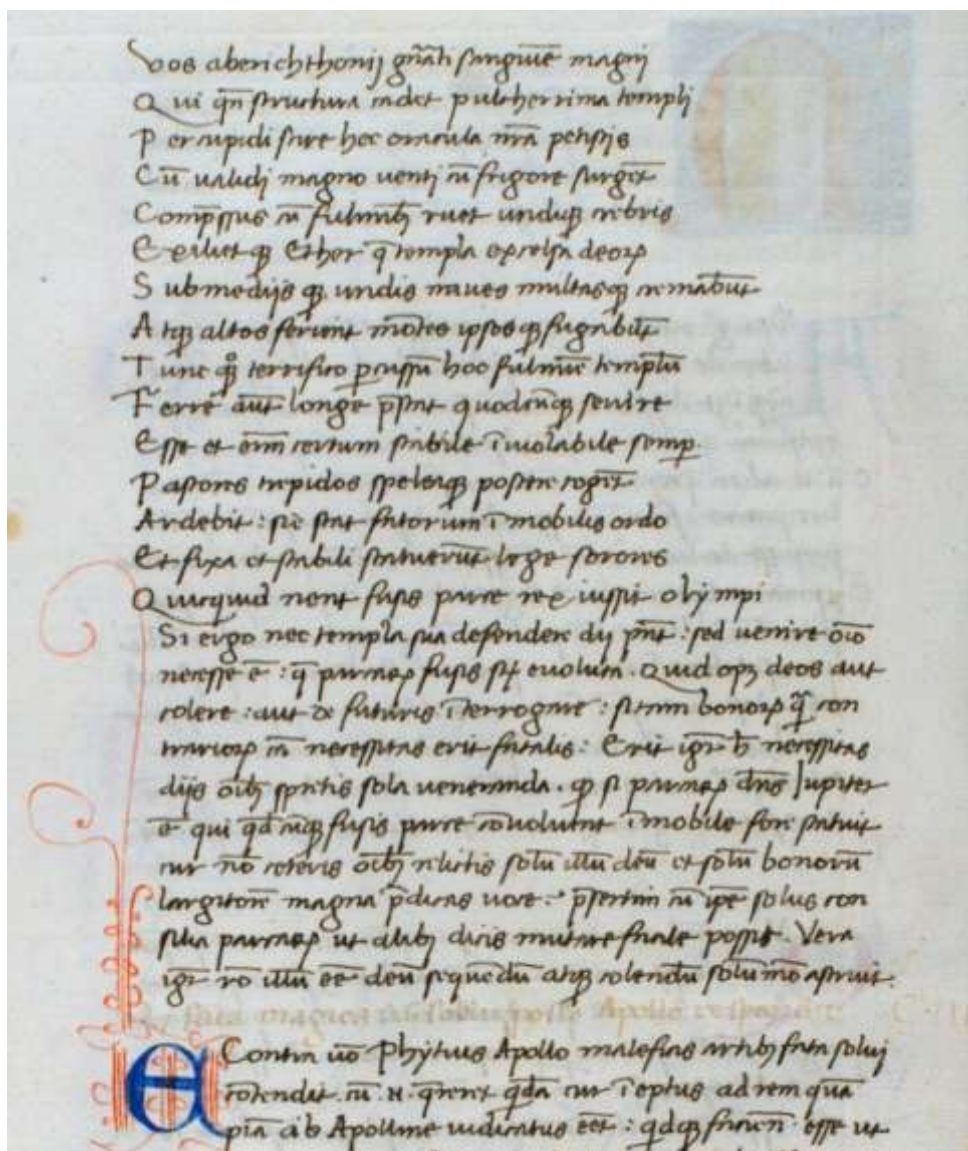 Vos aberichthonij gn̄ati sanguīe magni
Qui qn̄ structura cadet pulcherrima templi
Percupidi scire hec oracula nr̄a petistis
Cū ualidi magno uenti cū frigore surgēt
cū fulmīb; ruet undiq; crebris
Ether q̄ templa excelsa deoꝝ
Submedijs q; undis naues multasq; cremabūt
Atq; altos ferient mōtes ipsosq; fugabūt
Tunc terrifico ꝑcussū hoc fulmīe templū
Ferre aūt longe p̄stat quodcūq; seuire
Esse et enī certum stabile īuiolabile semꝑ
Pastores trepidos speleaq; postere cogēt
Ardebit : sic stat fatorum īmobilis ordo
Et fixa et stabili statuerūt lege sorores
Quicquid nent fusis parce rex iussit olympi
Si ergo nec templa sua defendere dij pn̄t : sed uenire oīo
necesse ē : q̄ parcaꝝ fusis st̄ euoluta . Quid opꝫ deos aut
colere : aut de futuris īterrogare : si tam bonoꝝ q̄ con
trarioꝝ cā necessitas erit fatalis : Erit igr̄ h̄ necessitas
dijs oīb; spretis sola ueneranda . qꝫ si parcaꝝ dn̄s Iupiter
ē qui qd̄ cūq; fusis parce cōuoluunt īmobile fore statuit
cur nō ceteris oīb; relictis solū illū deū et solū bonorū
largitorē magna p̄dicas uoce : p̄sertim cū ip̄e solus con
silia parcaꝝ ut alib; dicis mutare possit . Vera
igr̄ rō illū eē deū sequēdū atq; colendū solūmō astruit .
E Contra uō Phytius Apollo maleficis artib; fata solui
cōtendit . cū .n. q̄reret q̄dā cur īeptus ad rem quā
piā ab Apolline iudicatus eēt : qd̄q; esse ut